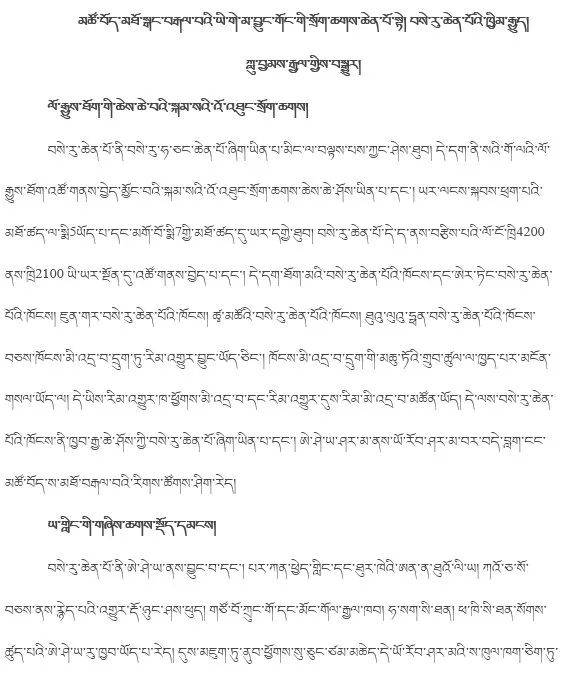 མཚོ་བོད་མཐོ་སྒང་བརྒལ་བའི་ཡི་གེ་མ་བྱུང་གོང་གི་སྲོག་ཆགས་ཆེན་པོ་སྟེ། བསེ་རུ་ཆེན་པོའི་ཁྱིམ་རྒྱུད།
ཀླུ་བྱམས་རྒྱལ་གྱིས་བསྒྱུར།
ལོ་རྒྱུས་ཐོག་གི་ཆེས་ཆེ་བའི་སྐམ་སའི་འོ་འཐུང་སྲོག་ཆགས།
བསེ་རུ་ཆེན་པོ་ནི་བསེ་རུ་ཧ་ཅང་ཆེན་པོ་ཞིག་ཡིན་པ་མིང་ལ་བལྟས་པས་ཀྱང་ཤེས་ཐུབ། དེ་དག་ནི་སའི་གོ་ལའི་ལོ་
རྒྱུས་ཐོག་འཚོ་གནས་བྱེད་མྱོང་བའི་སྐམ་སའི་འོ་འཐུང་སྲོག་ཆགས་ཆེས་ཆེ་ཤོས་ཡིན་པ་དང་། ཡར་ལངས་སྐབས་ཕྲག་པའི་
མཐོ་ཚད་ལ་སྨི5ཡོད་པ་དང་མགོ་བོ་སྨི7གྱི་མཐོ་ཚད་དུ་ཡར་དགྱེ་ཐུབ། བསེ་རུ་ཆེན་པོ་དེ་ད་ནས་བརྩིས་པའི་ལོ་ངོ་ཁྲི4200
ནས་ཁྲི2100 ཡི་ཡར་སྔོན་དུ་འཚོ་གནས་བྱེད་པ་དང་། དེ་དག་ཐོག་མའི་བསེ་རུ་ཆེན་པོའི་ཁོངས་དང་ཨེར་ཏེང་བསེ་རུ་ཆེན་
པོའི་ཁོངས། ཇུན་གར་བསེ་རུ་ཆེན་པོའི་ཁོངས། ཚྭ་མཚོའི་བསེ་རུ་ཆེན་པོའི་ཁོངས། ཐུའུ་ལུའུ་ཧྥན་བསེ་རུ་ཆེན་པོའི་ཁོངས་
བཅས་ཁོངས་མི་འདྲ་བ་དྲུག་ཏུ་རིམ་འགྱུར་བྱུང་ཡོད་ཅིང་། ཁོངས་མི་འདྲ་བ་དྲུག་གི་མཆུ་ཏོའི་གྲུབ་ཚུལ་ལ་ཁྱད་པར་མངོན་
གསལ་ཡོད་ལ། དེ་ཡིས་རིམ་འགྱུར་ཁ་ཕྱོགས་མི་འདྲ་བ་དང་རིམ་འགྱུར་དུས་རིམ་མི་འདྲ་བ་མཚོན་ཡོད། དེ་ལས་བསེ་རུ་ཆེན་
པོའི་ཁོངས་ནི་ཁྱབ་རྒྱ་ཆེ་ཤོས་ཀྱི་བསེ་རུ་ཆེན་པོ་ཞིག་ཡིན་པ་དང་། ཨེ་ཤེ་ཡ་ཤར་མ་ནས་ཡོ་རོབ་ཤར་མ་བར་བདེ་བླག་ངང་
མཚོ་བོད་ས་མཐོ་བརྒལ་བའི་རིགས་ཚོགས་ཤིག་རེད།
ཡ་གླིང་གི་གཞིས་ཆགས་སྡོད་དམངས།
བསེ་རུ་ཆེན་པོ་ནི་ཨེ་ཤེ་ཡ་ནས་བྱུང་བ་དང་། པར་ཀན་ཕྱེད་གླིང་དང་ཐུར་ཁེའི་ཨན་ན་ཐུའོ་ལི་ཡ། ཀའོ་ཅ་སོ་
བཅས་ནས་རྙེད་པའི་འགྱུར་རྡོ་ཉུང་ཤས་ཕུད། གཙོ་བོ་ཀྲུང་གོ་དང་མོང་གོལ་རྒྱལ་ཁབ། ཧ་སག་སི་ཐན། ཕ་ཁི་སི་ཐན་སོགས་
ཚུད་པའི་ཨེ་ཤེ་ཡ་རུ་ཁྱབ་ཡོད་པ་རེད། དུས་མཇུག་ཏུ་ནུབ་ཕྱོགས་སུ་ཅུང་ཙམ་མཆེད་དེ་ཡོ་རོབ་ཤར་མའི་ས་ཁུལ་ཁག་ཅིག་ཏུ་